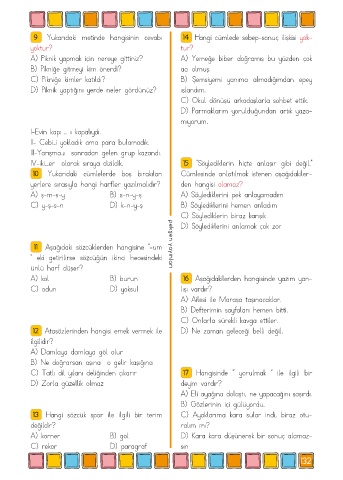 9 Yukarıdaki metinde hangisinin cevabı
yoktur?
A) Piknik yapmak için nereye gittiniz?
B) Pikniğe gitmeyi kim önerdi?
C) Pikniğe kimler katıldı?
D) Piknik yaptığını yerde neler gördünüz?
I-Evin kapı .. ı kapalıydı.
II- Cebi..i yokladık ama para bulamadık.
III-Yarışma.ı sonradan gelen grup kazandı.
IV-İki..er olarak sıraya dizildik.
10 Yukarıdaki cümlelerde boş bırakılan
yerlere sırasıyla hangi harfler yazılmalıdır?
A) ş-m-s-y
B) s-n-y-ş
C) y-ş-s-n
D) k-n-y-ş
11 Aşağıdaki sözcüklerden hangisine "-ım
" eki getirilirse sözcüğün ikinci hecesindeki
ünlü harf düşer?
A) kol
B) burun
C) odun
D) yoksul
12 Atasözlerinden hangisi emek vermek ile
ilgilidir?
A) Damlaya damlaya göl olur.
B) Ne doğrarsan aşına o gelir kaşığına
C) Tatlı dil yılanı deliğinden çıkarır
D) Zorla güzellik olmaz
13 Hangi sözcük spor ile ilgili bir terim
değildir?
A) korner
B) gol
C) rekor
D) paragraf
pelikgen yayınları
14 Hangi cümlede sebep-sonuç ilişkisi yok-
tur?
A) Yemeğe biber doğramış bu yüzden çok
acı olmuş.
B) Şemsiyemi yanıma almadığımdan epey
ıslandım.
C) Okul dönüşü arkadaşlarla sohbet ettik.
D) Parmaklarım yorulduğundan artık yaza-
mıyorum.
15 "Söylediklerin hiçte anlaşır gibi değil."
Cümlesinde anlatılmak istenen aşağıdakiler-
den hangisi olamaz?
A) Söylediklerini pek anlayamadım
B) Söylediklerini hemen anladım
C) Söylediklerin biraz karışık
D) Söylediklerini anlamak çok zor
16 Aşağıdakilerden hangisinde yazım yan-
lışı vardır?
A) Ailesi ile Maraşa taşınacaklar.
B) Defterimin sayfaları hemen bitti.
C) Onlarla sürekli kavga ettiler.
D) Ne zaman geleceği belli değil.
17 Hangisinde " yorulmak " ile ilgili bir
deyim vardır?
A) Eli ayağına dolaştı, ne yapacağını şaşırdı.
B) Gözlerinin içi gülüyordu.
C) Ayaklarıma kara sular indi, biraz otu-
ralım mı?
D) Kara kara düşünerek bir sonuç alamaz-
sın
132